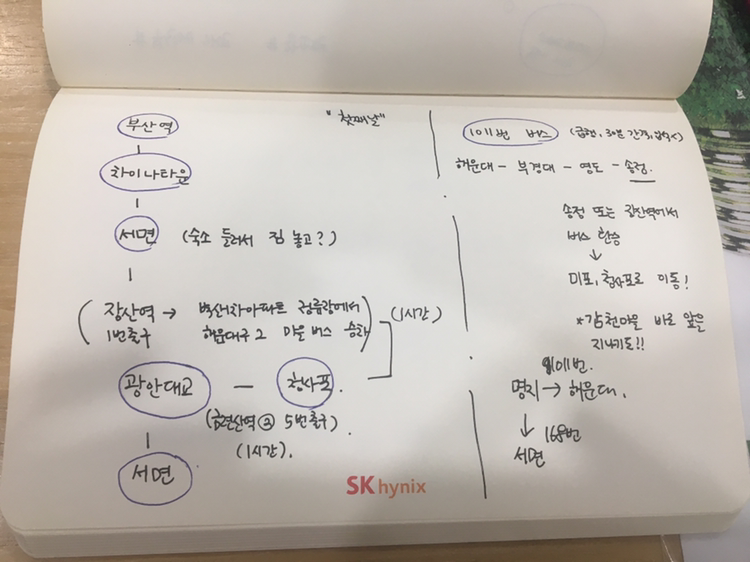 "첫째날"
부산역
차이나타운
서면 (숙소 들러서 짐 놓고?)
(장산역 → 벽산1차아파트 정류장에서
1번출구 해운대구2 마을 버스 승차)
(1시간)
광안대교 — 청사포.
(금련산역 ② 5번출구)
(1시간).
서면
1011번 버스 (급행, 30분 간격,
해운대 - 부경대 - 영도 - 송정.
송정 또는 장산역에서
버스 환승
↓
미포, 청사포로 이동!
*감천마을 바로 앞은
지나가도!!
1011번.
명지 → 해운대.
↓ 168번
서면
SK hynix